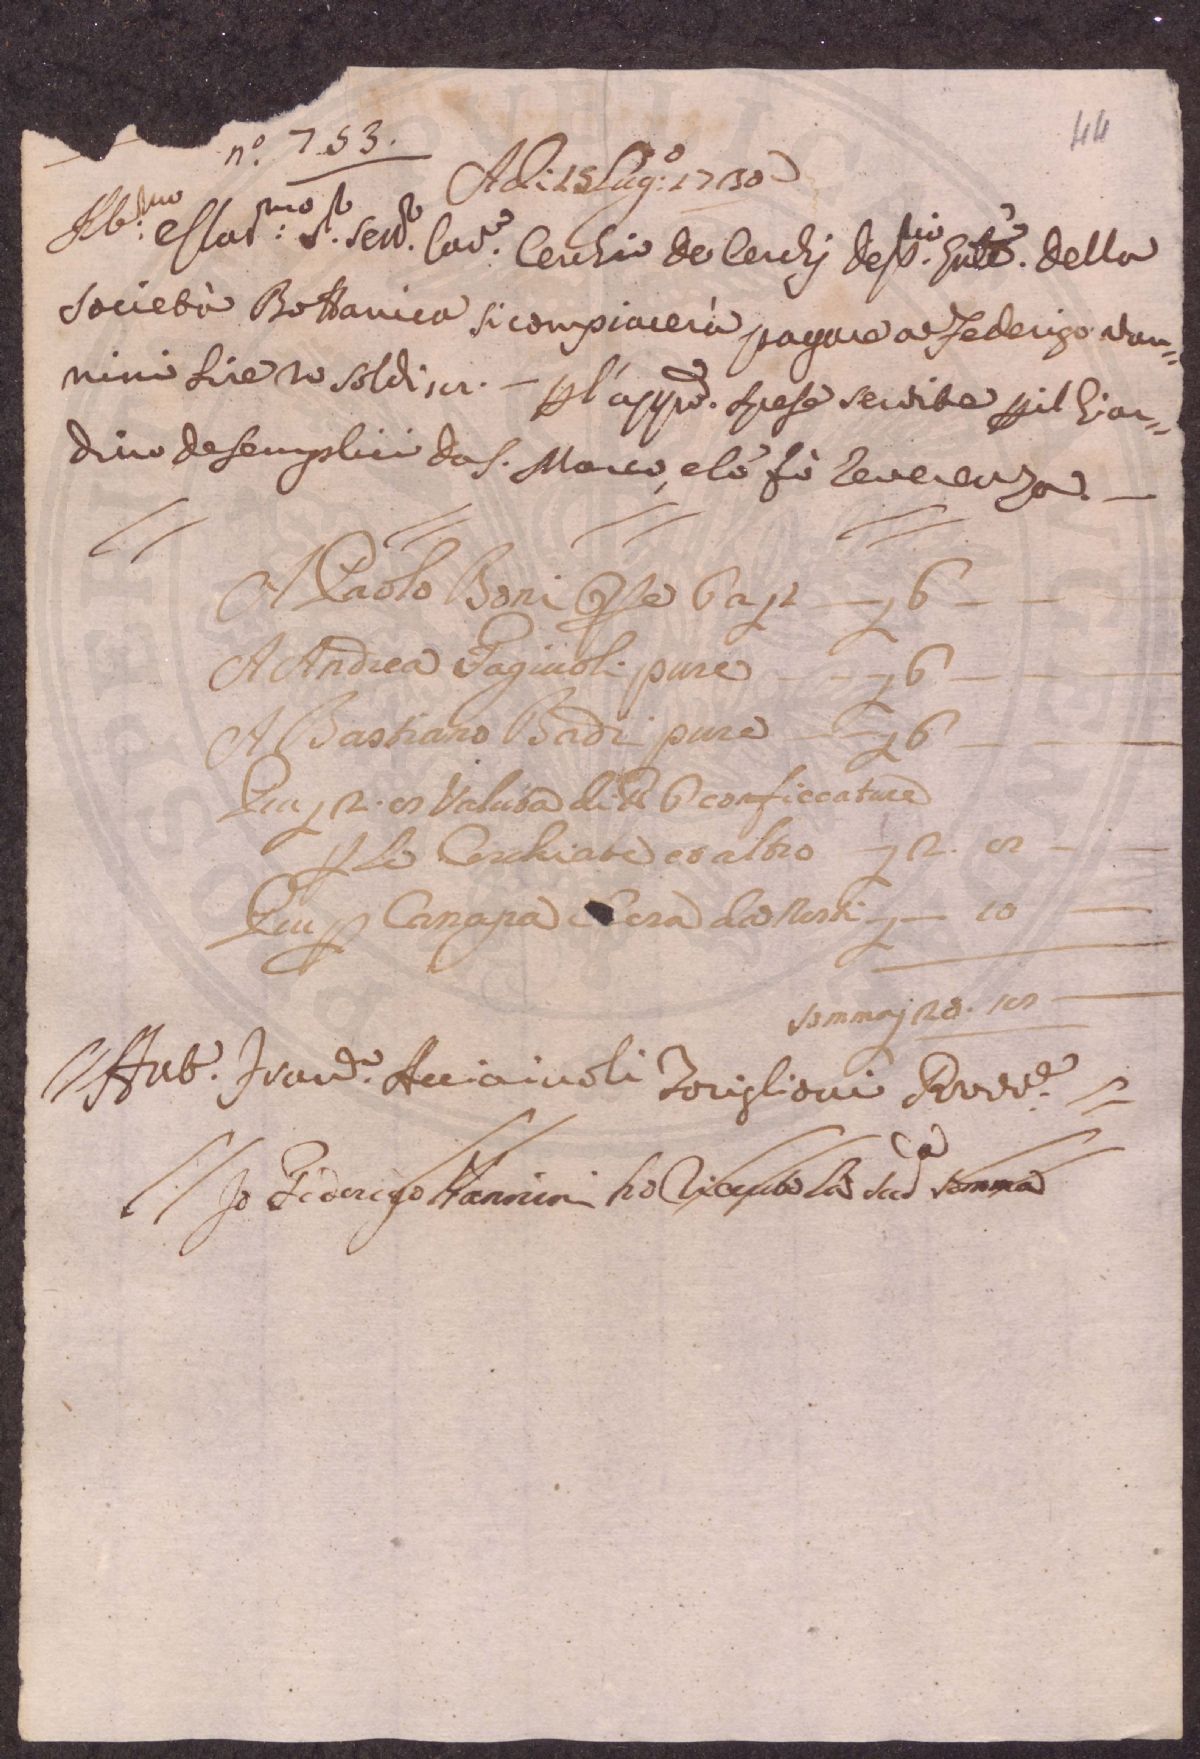 44
n.º 753.
A di: 15 Lug:º 1730
Ill:mo e Clar:mo S.r Sen.r Cav.e Cerchio de Cerchj dep.rio Gnle. della
società Bottanica si compiacerà pagare a Federigo Van=
nini lire 20 soldi 12. — p l'appo. spese servite p il Giar=
dino de semplici da S. Marco, e lo fò reverenza. —
A Paolo Boni Op.e 6 a £ 1 — £ 6 — —
A Andrea Fagiuoli pure — — £ 6 — —
A Bastiano Badi pure — £ 6 — —
Piu £ 2. 2 Valuta di lb 6 conficcature
p le Cerchiate et altro £ 2. 2 —
Piu p Canapa Cera da Nesti £ — 10 —
somma £ 20. 12 —
Ant.o Franc.o Acciaiuoli Toriglioni Provv.e
Io Federigo Vannini ho ricevuto la sud.a somma